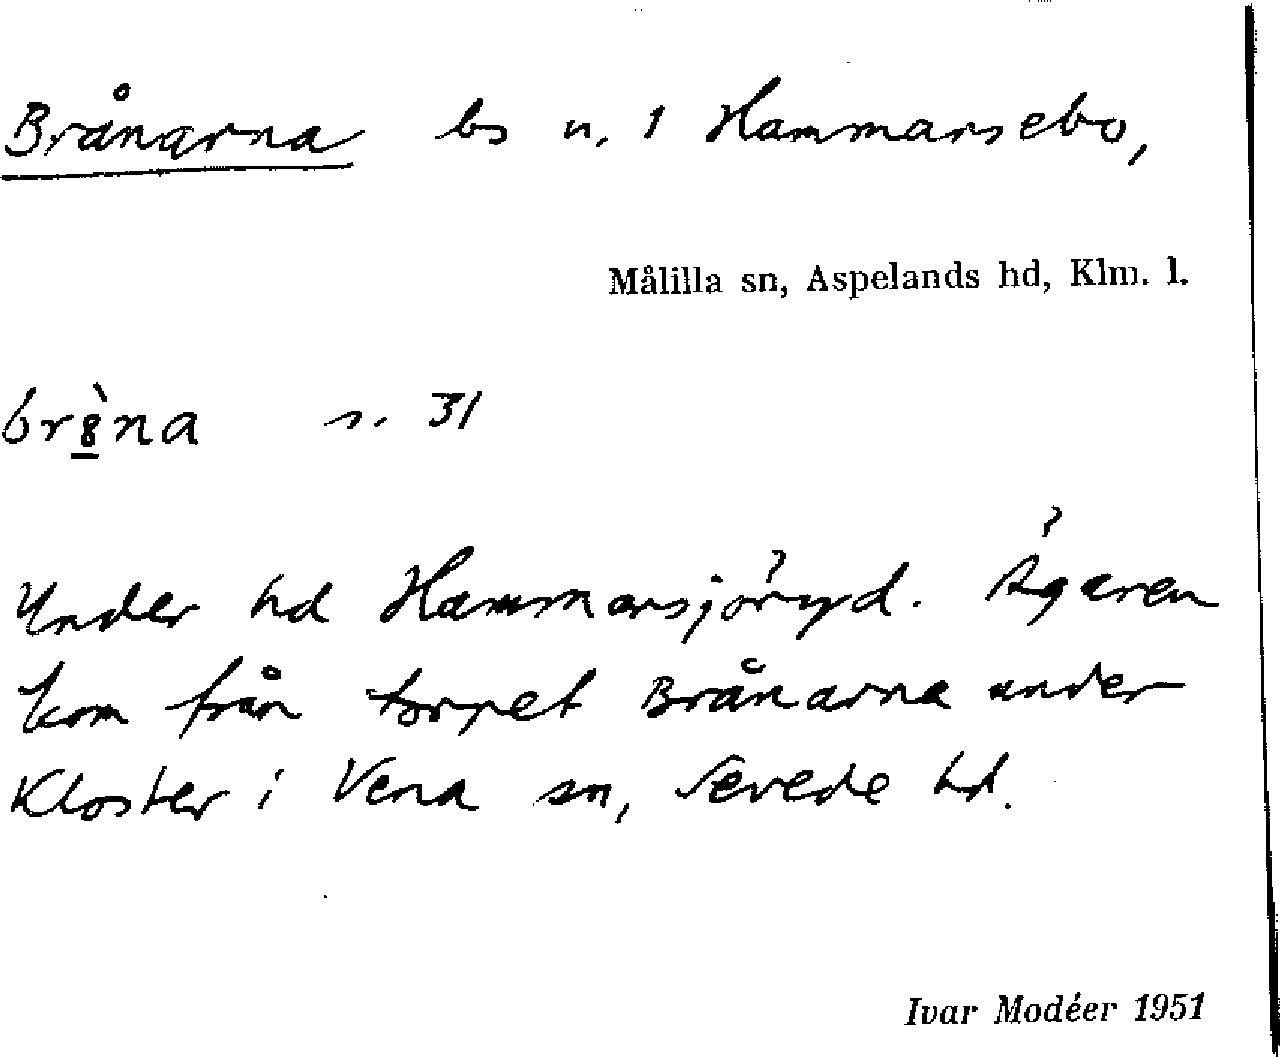 Brånarna bs n. 1 Hammarsebo,
Målilla sn, Aspelands hd, Klm. l.
br8̲̀na s. 31
Under hd Hammarsjöryd. Ägaren
kom från torpet Brånarna under
Kloster i Vena sn, Sevede hd.
Ivar Modéer 1951